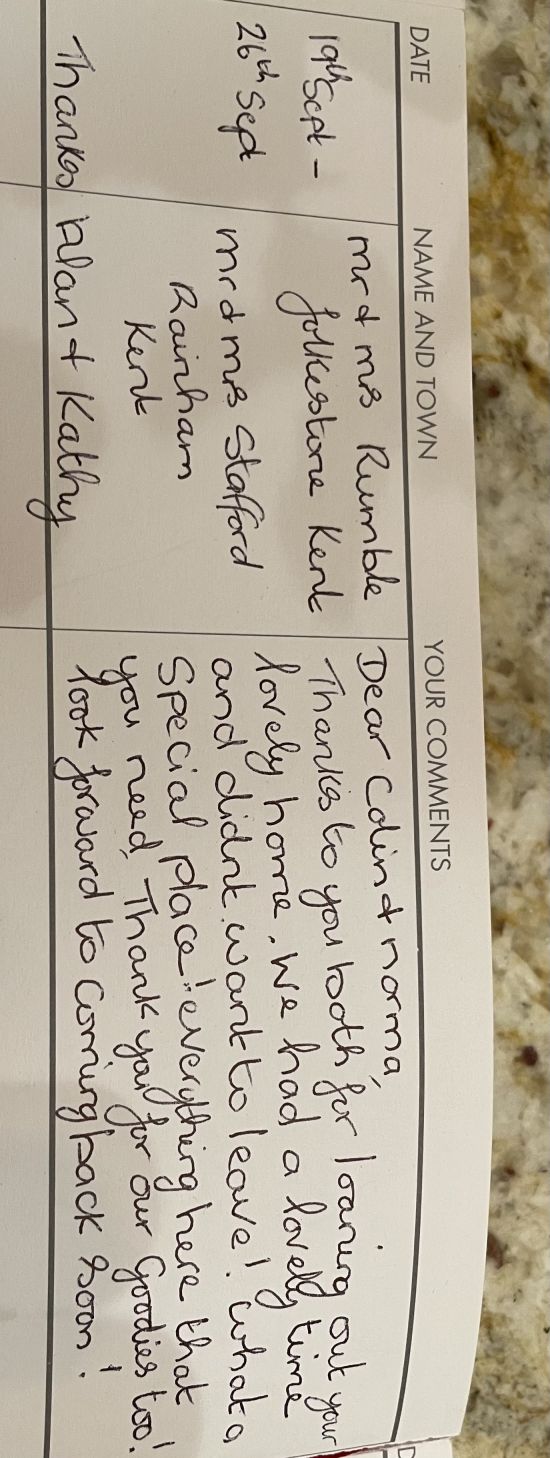 DATE
NAME AND TOWN
YOUR COMMENTS
19th Sept -
26th Sept
mr & mrs Rumble
folkestone Kent
mr & mrs Stafford
Rainham
Kent
Thanks Alan & Kathy
Dear Colin & norma,
Thanks to you both for loaning out your
lovely home. We had a lovely time
and didnt want to leave! What a
Special place! everything here that
you need, Thank you for our Goodies too!
look forward to coming back soon!
D